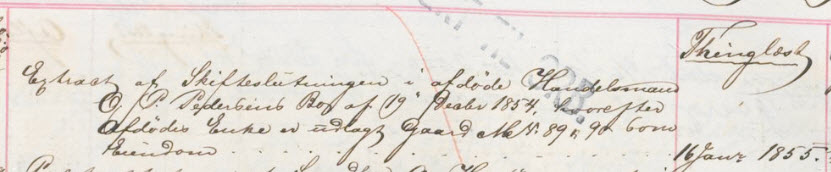 Thinglæst
Extract af Skifteslutningen i afdøde Handelsmand
O. P. Pedersens Boe af 19 Decbr 1854, hvorefter
Afdødes Enke er udlagt Gaard No 89 90 som
Eiendom
16 Janr 1855.